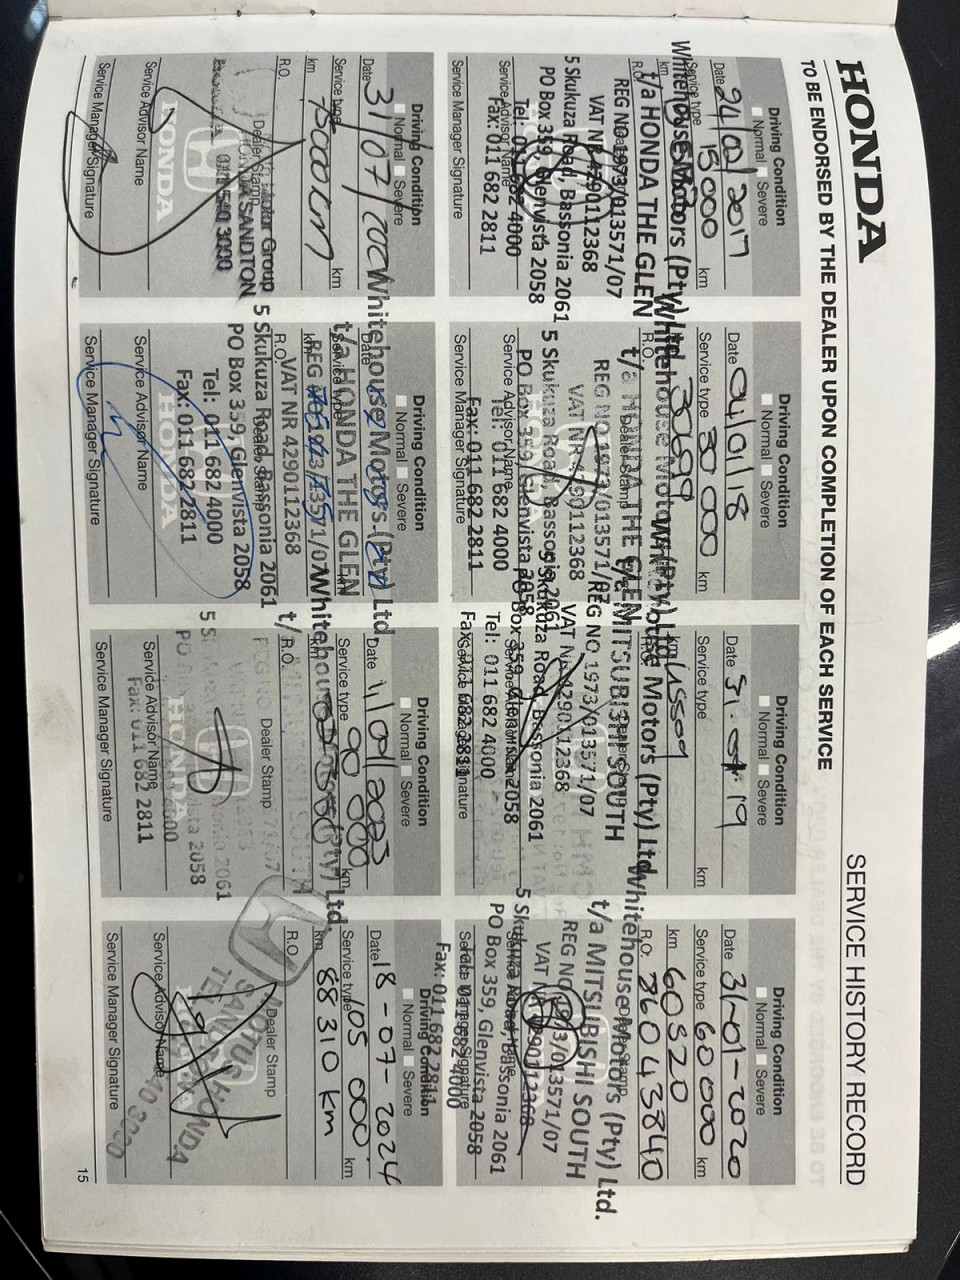 HONDA
SERVICE HISTORY RECORD
TO BE ENDORSED BY THE DEALER UPON COMPLETION OF EACH SERVICE
Driving Condition
Normal Severe
Date 24/02/2017
Service type 15 000 km
km
R.O.
Whitehouse Motors (Pty) Ltd
t/a HONDA THE GLEN
REG NO 1973/013571/07
VAT NR 4290112368
5 Skukuza Road, Bassonia 2061
PO Box 359, Glenvista 2058
Tel: 011 682 4000
Fax: 011 682 2811
Service Advisor Name
Service Manager Signature
Driving Condition
Normal Severe
Date 04/01/18
Service type 30 000 km
km 30699
R.O.
Whitehouse Motors (Pty) Ltd
t/a HONDA THE GLEN
REG NO 1973/013571/07
VAT NR 4290112368
5 Skukuza Road, Bassonia 2061
PO Box 359, Glenvista 2058
Tel: 011 682 4000
Fax: 011 682 2811
Dealer Stamp
Service Advisor Name
Service Manager Signature
Driving Condition
Normal Severe
Date 31.01.19
Service type km
km
Whitehouse Motors (Pty) Ltd
t/a MITSUBISHI SOUTH
REG NO 1973/013571/07
VAT NR 4290112368
5 Skukuza Road, Bassonia 2061
PO Box 359, Glenvista 2058
Tel: 011 682 4000
Fax: 011 682 2811
Service Manager Signature
Driving Condition
Normal Severe
Date 31-01-2020
Service type 60 000 km
km 60320
R.O. 26043840
Whitehouse Motors (Pty) Ltd.
t/a MITSUBISHI SOUTH
REG NO 1973/013571/07
VAT NR 4290112368
5 Skukuza Road, Bassonia 2061
PO Box 359, Glenvista 2058
Tel: 011 682 4000
Fax: 011 682 2811
Service Advisor Name
Service Manager Signature
Driving Condition
Normal Severe
Date 31/07/
Service type 75000 km
km
R.O.
Dealer Stamp
Motor Group
HONDA SANDTON
011 540 3000
HONDA
Service Advisor Name
Service Manager Signature
Driving Condition
Normal Severe
Date
Service type
km
R.O.
Whitehouse Motors (Pty) Ltd
t/a HONDA THE GLEN
REG NO 1973/013571/07
VAT NR 4290112368
5 Skukuza Road, Bassonia 2061
PO Box 359, Glenvista 2058
Tel: 011 682 4000
Fax: 011 682 2811
Dealer Stamp
HONDA
Service Advisor Name
Service Manager Signature
Driving Condition
Normal Severe
Date 11/01/2023
Service type 90 000 km
km
R.O.
Whitehouse Motors (Pty) Ltd.
Dealer Stamp
HONDA
Fax: 011 682 2811
Service Advisor Name
Service Manager Signature
Driving Condition
Normal Severe
Date 18-07-2024
Service type 105 000 km
km 88310 km
R.O.
Dealer Stamp
MOTUS HONDA
SANDTON
Service Advisor Name
Service Manager Signature
15